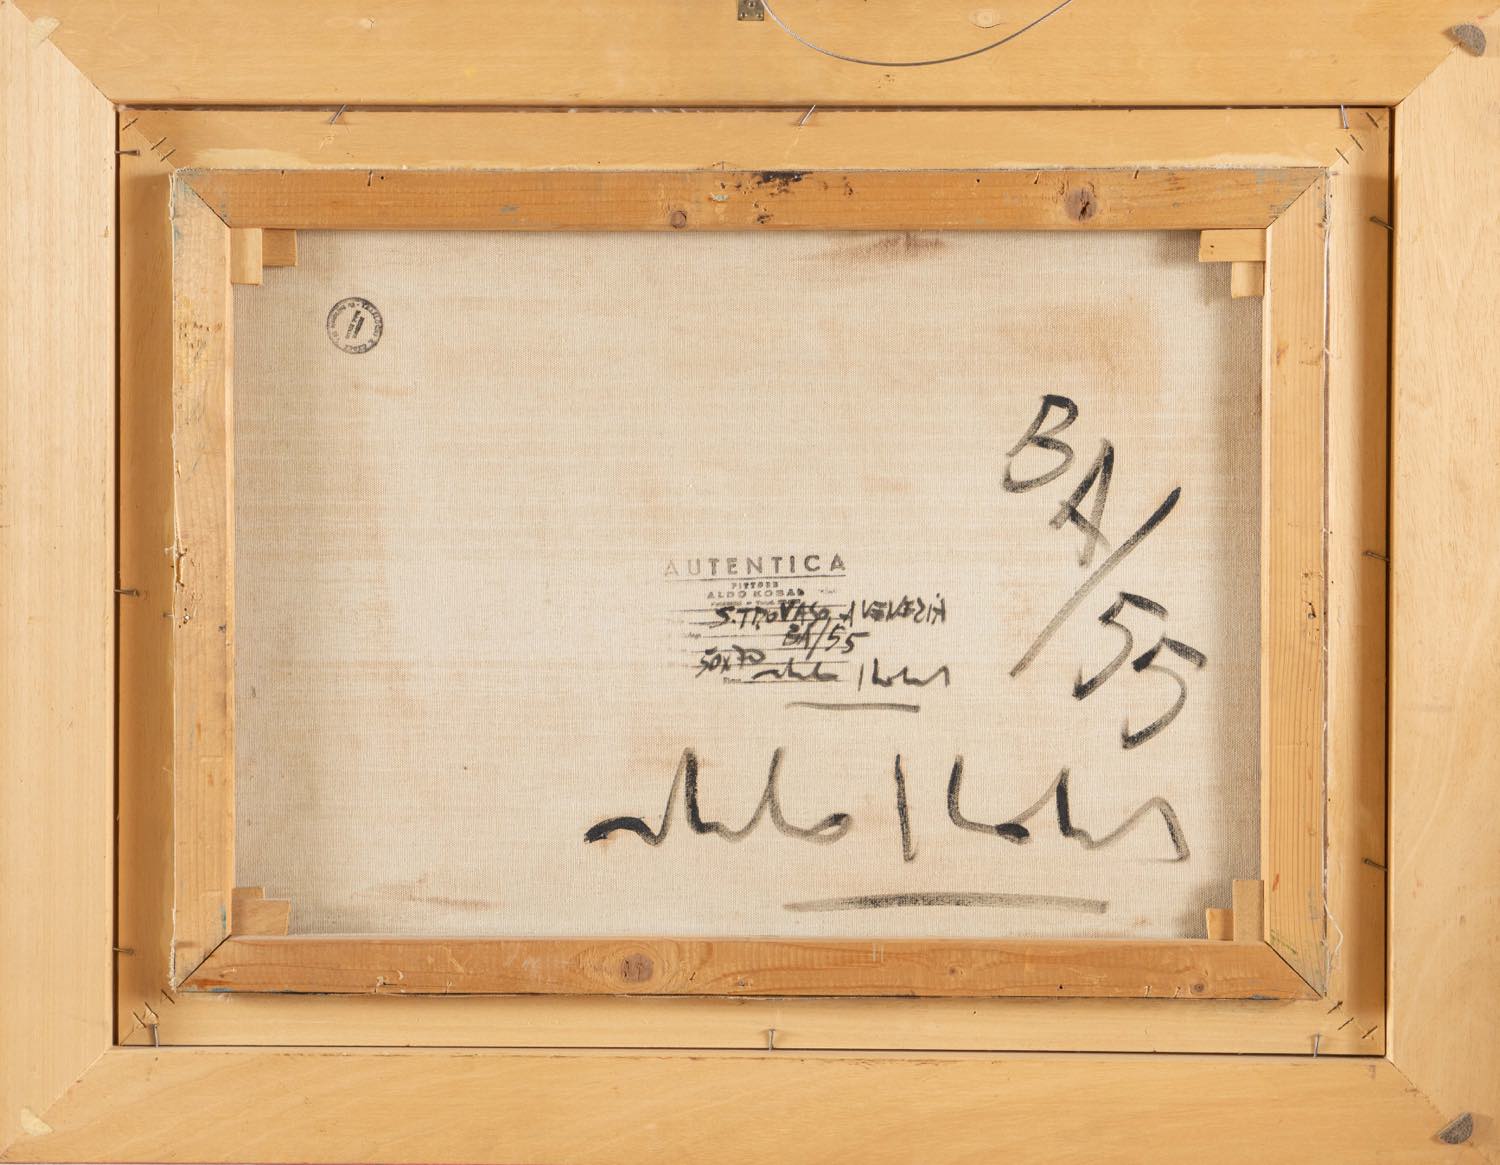 BA/55
AUTENTICA
PITTORE
ALDO KOBAL
S. TROVASO, A VENEZIA
BA/55
50x70
Aldo Kobal
Aldo Kobal